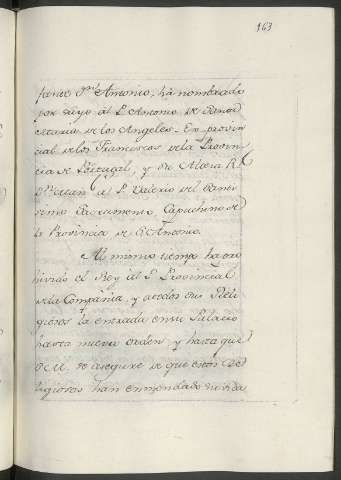 163
fante Dn. Antonio, ha nombrado
por suyo al P. Antonio de
de los Angeles, Ex provin
cial de los Franciscos de la Provin
cia de Portugal, y
al P. Valerio del
simo Sacramento, Capuchino de
la Provincia de S. Antonio.
Al mismo tiempo ha pro
hivido el Rey al P. Provincial
de la Compañia, y a todos sus Reli
giosos la entrada en su Palacio
hasta nueva orden, y hasta que
S. M. se asegure de que estos Re
ligiosos han enmendado su vida